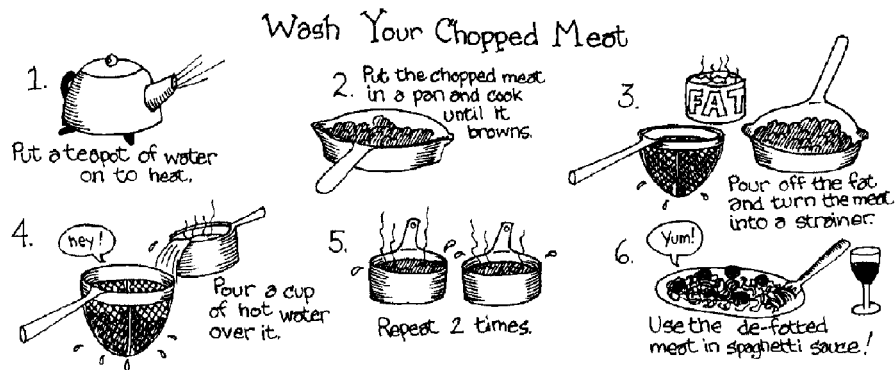 Wash Your Chopped Meat
1.
Put a teapot of water
on to heat.
2. Put the chopped meat
in a pan and cook
until it
browns.
3.
FAT
Pour off the fat
and turn the meat
into a strainer.
4.
hey!
Pour a cup
of hot water
over it.
5.
Repeat 2 times.
6.
Yum!
Use the de-fatted
meat in spaghetti sauce!